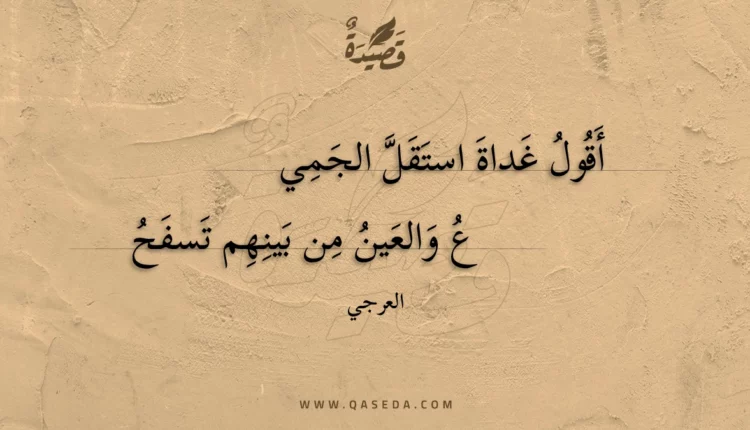 قَصِيدَةٌ
أَقُولُ غَداةَ استَقَلَّ الجَمِي
عُ وَالعَينُ مِن بَينِهِم تَسفَحُ
العرجي
WWW.QASEDA.COM